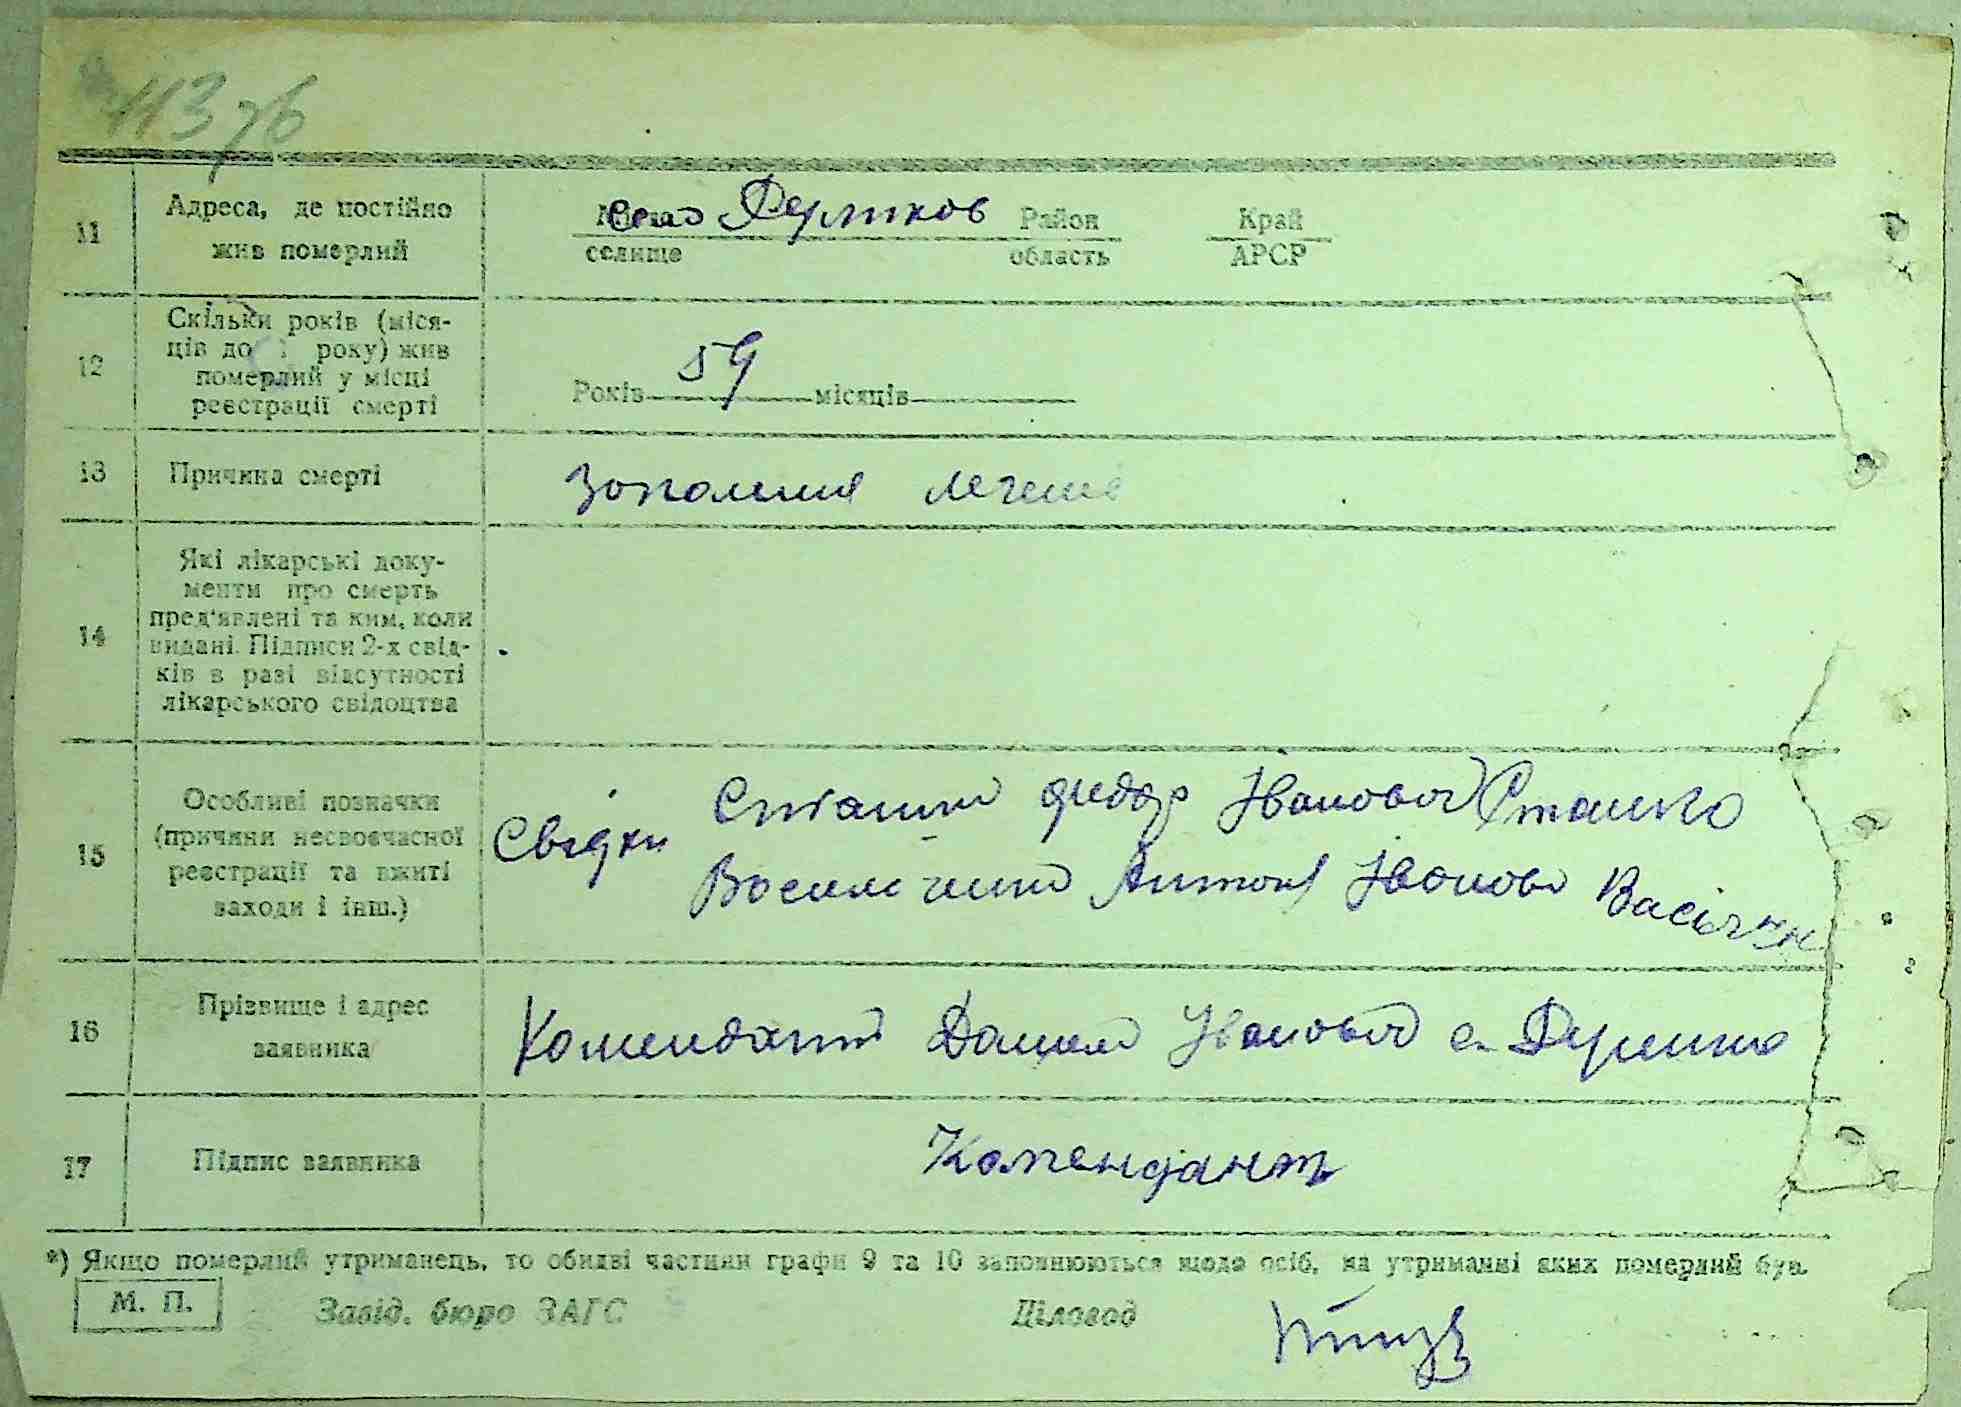 113 зб
11
Адреса, де постійно
жив померлий
Місто село Район Край
селище область АРСР
12
Скільки років (міся-
ців до 1 року) жив
померлий у місці
реєстрації смерті
Років 59 місяців
13
Причина смерті
Зополення легень
14
Які лікарські доку-
менти про смерть
пред'явлені та ким, коли
видані. Підписи 2-х свід-
ків в разі відсутності
лікарського свідоцтва
15
Особливі позначки
(причини несвоєчасної
реєстрації та вжиті
заходи і інш.)
Свідки
Федор Іванович
Антон Іванов
16
Прізвище і адрес
заявника
Комендант Данило Іванович с.
17
Підпис заявника
Комендант
*) Якщо померлий утриманець, то обидві частини графи 9 та 10 заповнюються щодо осіб, на утриманні яких померлий був.
М. П.
Завід. бюро ЗАГС Діловод